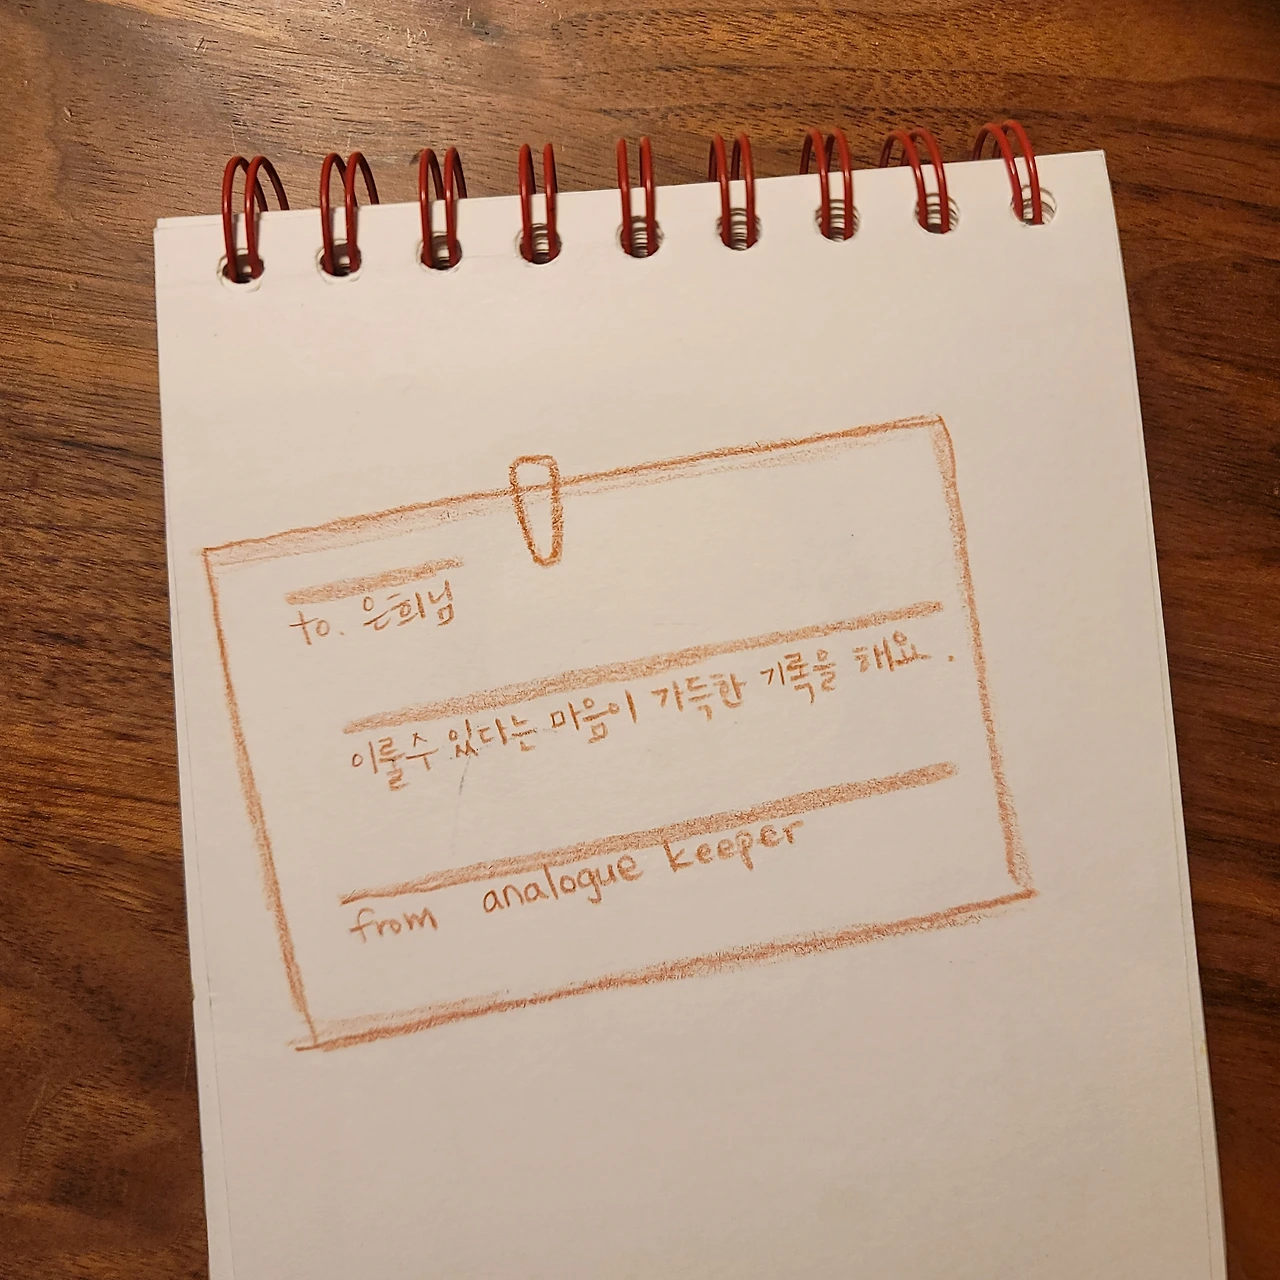 to. 은희님
이룰수 있다는 마음이 가득한 기록을 해요.
from analogue keeper